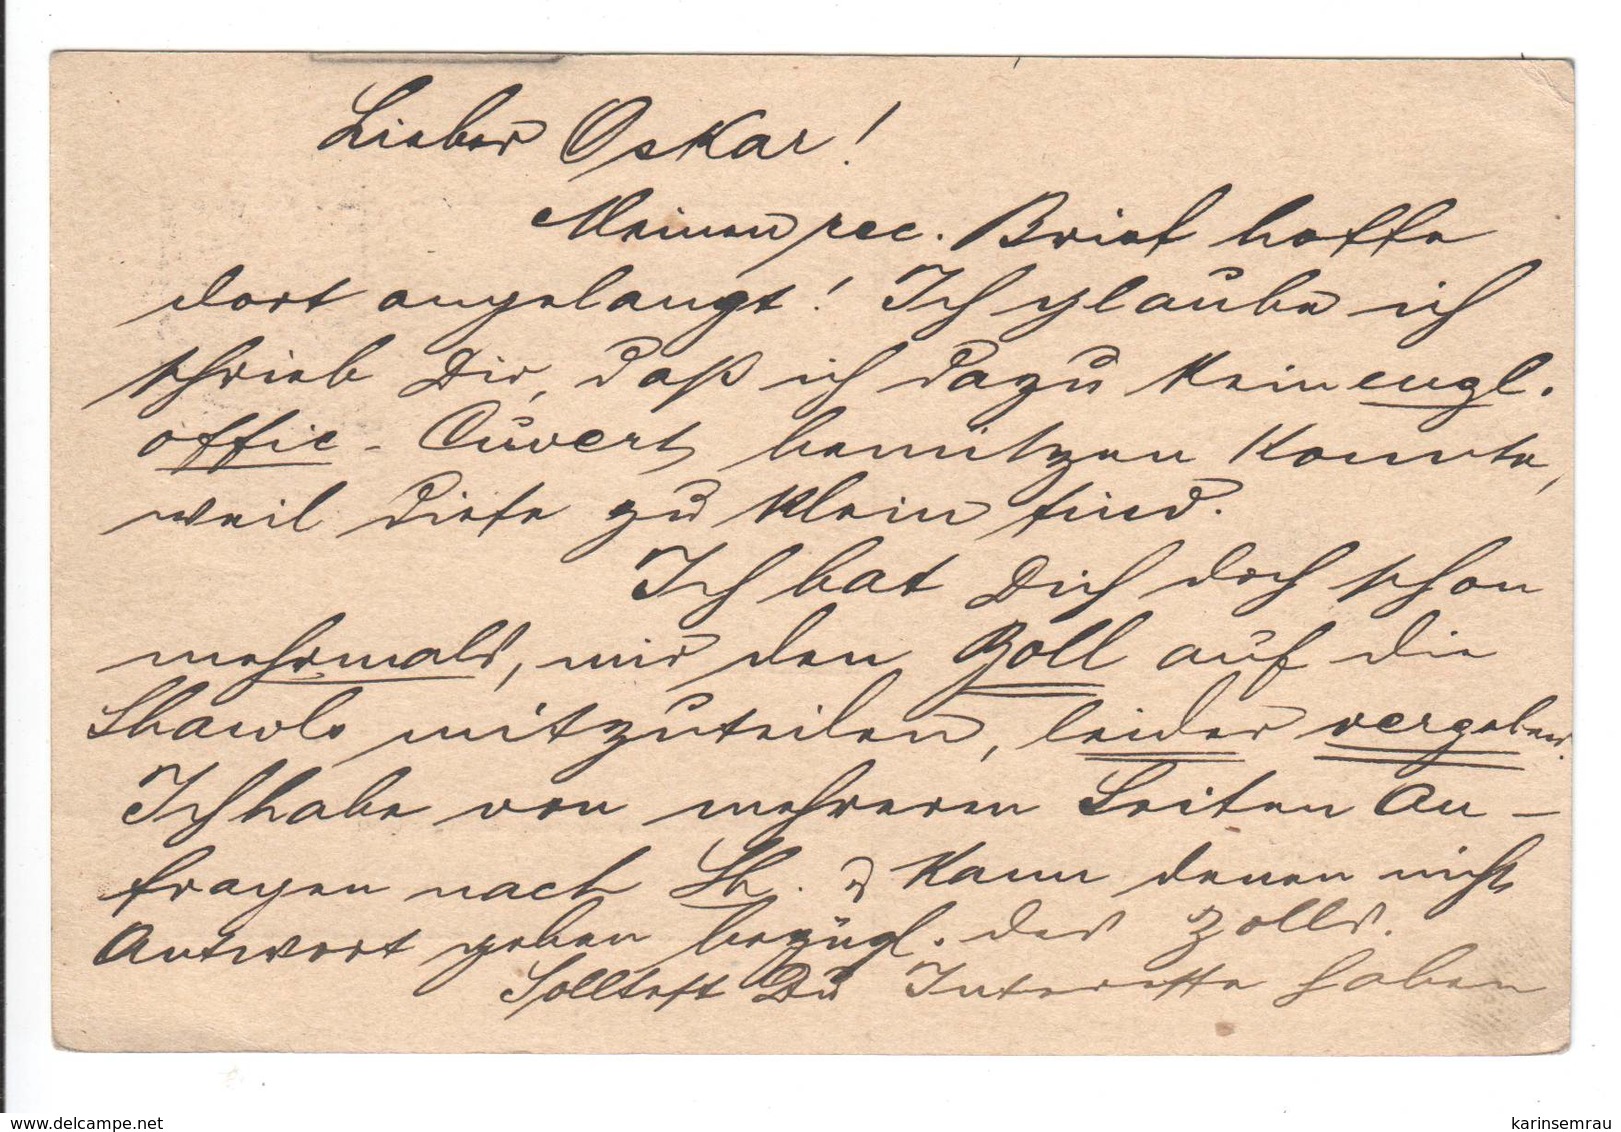 Lieber Oskar!
Meinen rec. Brief hoffe
dort angelangt! Ich glaube ich
schrieb Dir, daß ich dazu kein engl.
offic - Cuvert benützen konnte,
weil diese zu klein sind.
Ich bat Dich doch schon
mehrmals, mir den Zoll auf die
Shawls mitzuteilen, leider vergebens.
Ich habe von mehreren Seiten An-
fragen nach Sh. & kann denen nicht
Antwort geben bezügl. des Zolls.
Solltest Du Interesse haben
delcampe.net
karinsemrau